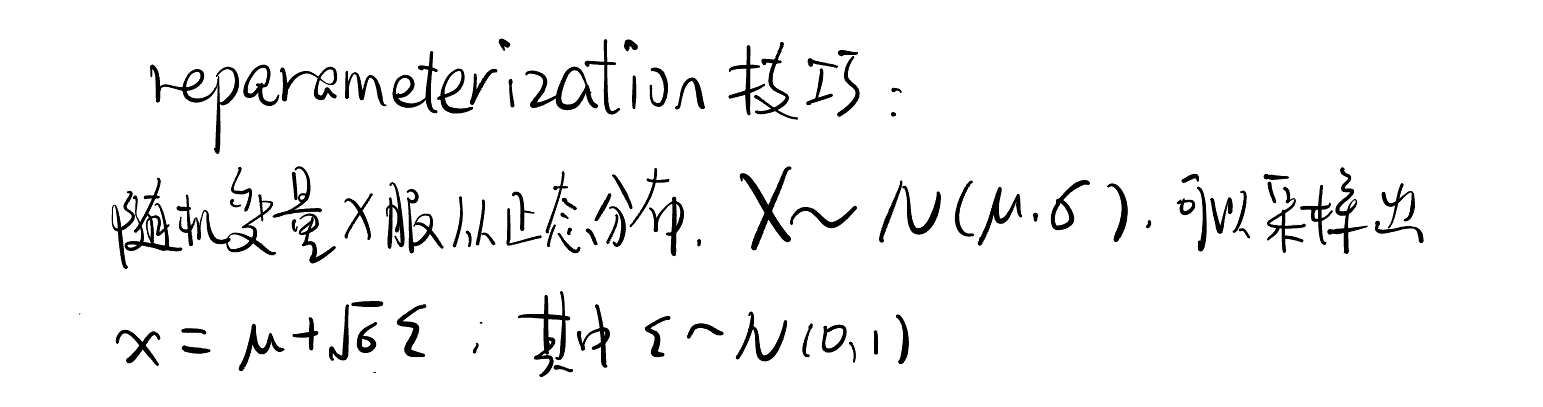 reparameterization 技巧：
随机变量 X 服从正态分布. X ~ N(μ.σ). 可以采样出
x = μ + √σ ε ; 其中 ε ~ N(0,1)